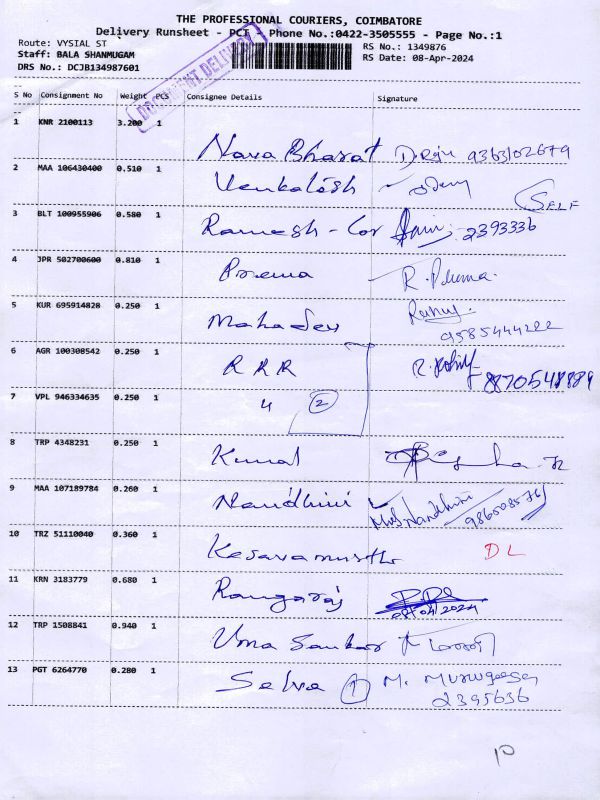 THE PROFESSIONAL COURIERS, COIMBATORE
Delivery Runsheet - PCT - Phone No.:0422-3505555 - Page No.:1
Route: VYSIAL ST
RS No.: 1349876
Staff: BALA SHANMUGAM
RS Date: 08-Apr-2024
DRS No.: DCJB134987601
S No Consignment No Weight PCS Consignee Details Signature
1 KNR 2100113 3.200 1
Nava Bharat D. Raju 9363102679
2 MAA 106430400 0.510 1
Venkatesh
SELF
3 BLT 100955906 0.580 1
Ramesh - Cor 2393336
4 JPR 502700600 0.810 1
Prema R. Prema.
5 KUR 695914828 0.250 1
Mahadev 9585444222
6 AGR 100308542 0.250 1
R R R 8870548889
7 VPL 946334635 0.250 1
4 2
8 TRP 4348231 0.250 1
Kumar
9 MAA 107189784 0.260 1
Nandhini Nandhini
10 TRZ 51110040 0.360 1
Kesavamurthi DL
11 KRN 3183779 0.680 1
Rangaraj
12 TRP 1508841 0.940 1
Uma Sankar
13 PGT 6264770 0.280 1
Selva 1 M. Murugesan
2395636
10